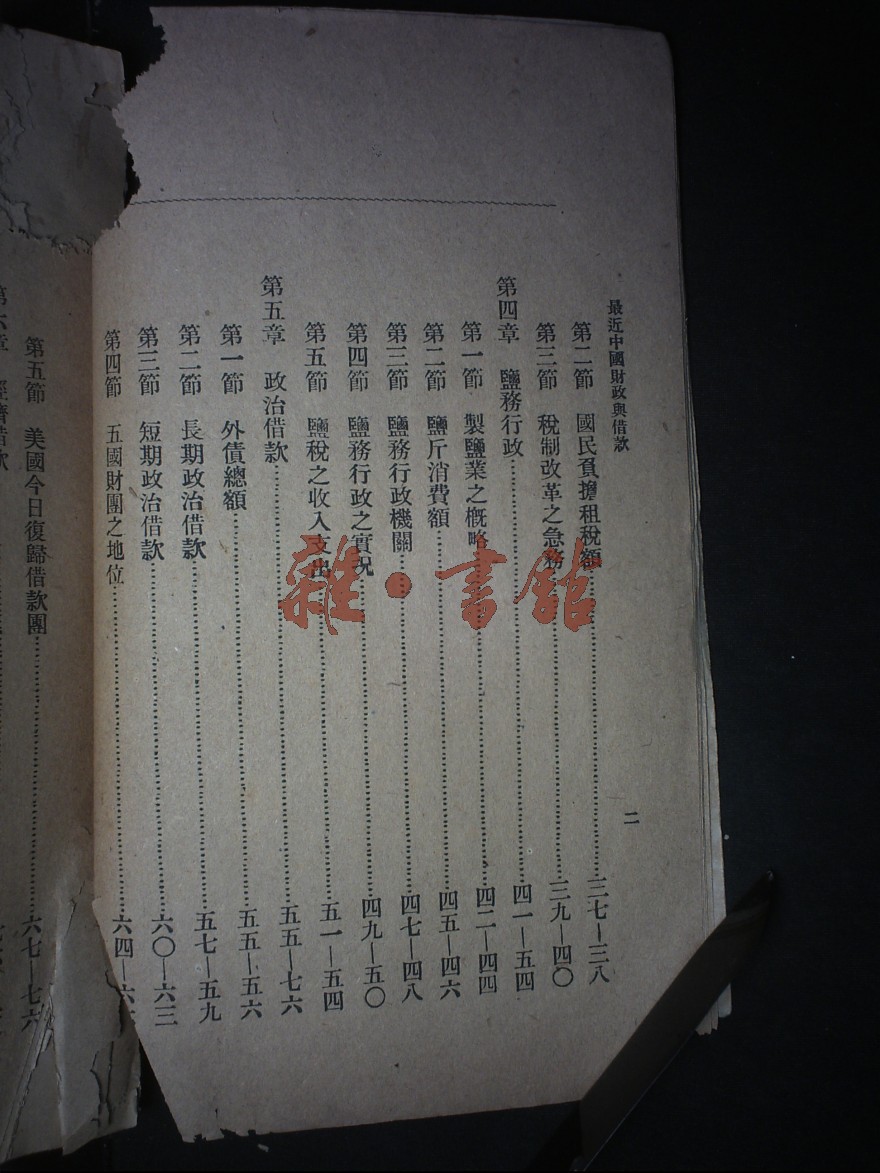 最近中國財政與借款
二
第二節 國民負擔租稅額 三七—三八
第三節 稅制改革之急務 三九—四〇
第四章 鹽務行政 四一—五四
第一節 製鹽業之概略 四二—四四
第二節 鹽斤消費額 四五—四六
第三節 鹽務行政機關 四七—四八
第四節 鹽務行政之實況 四九—五〇
第五節 鹽稅之收入支出 五一—五四
第五章 政治借款 五五—七六
第一節 外債總額 五五—五六
第二節 長期政治借款 五七—五九
第三節 短期政治借款 六〇—六三
第四節 五國財團之地位 六四—六
第五節 美國今日復歸借款團 六七—七六
第六章 經濟借款
雜·書館